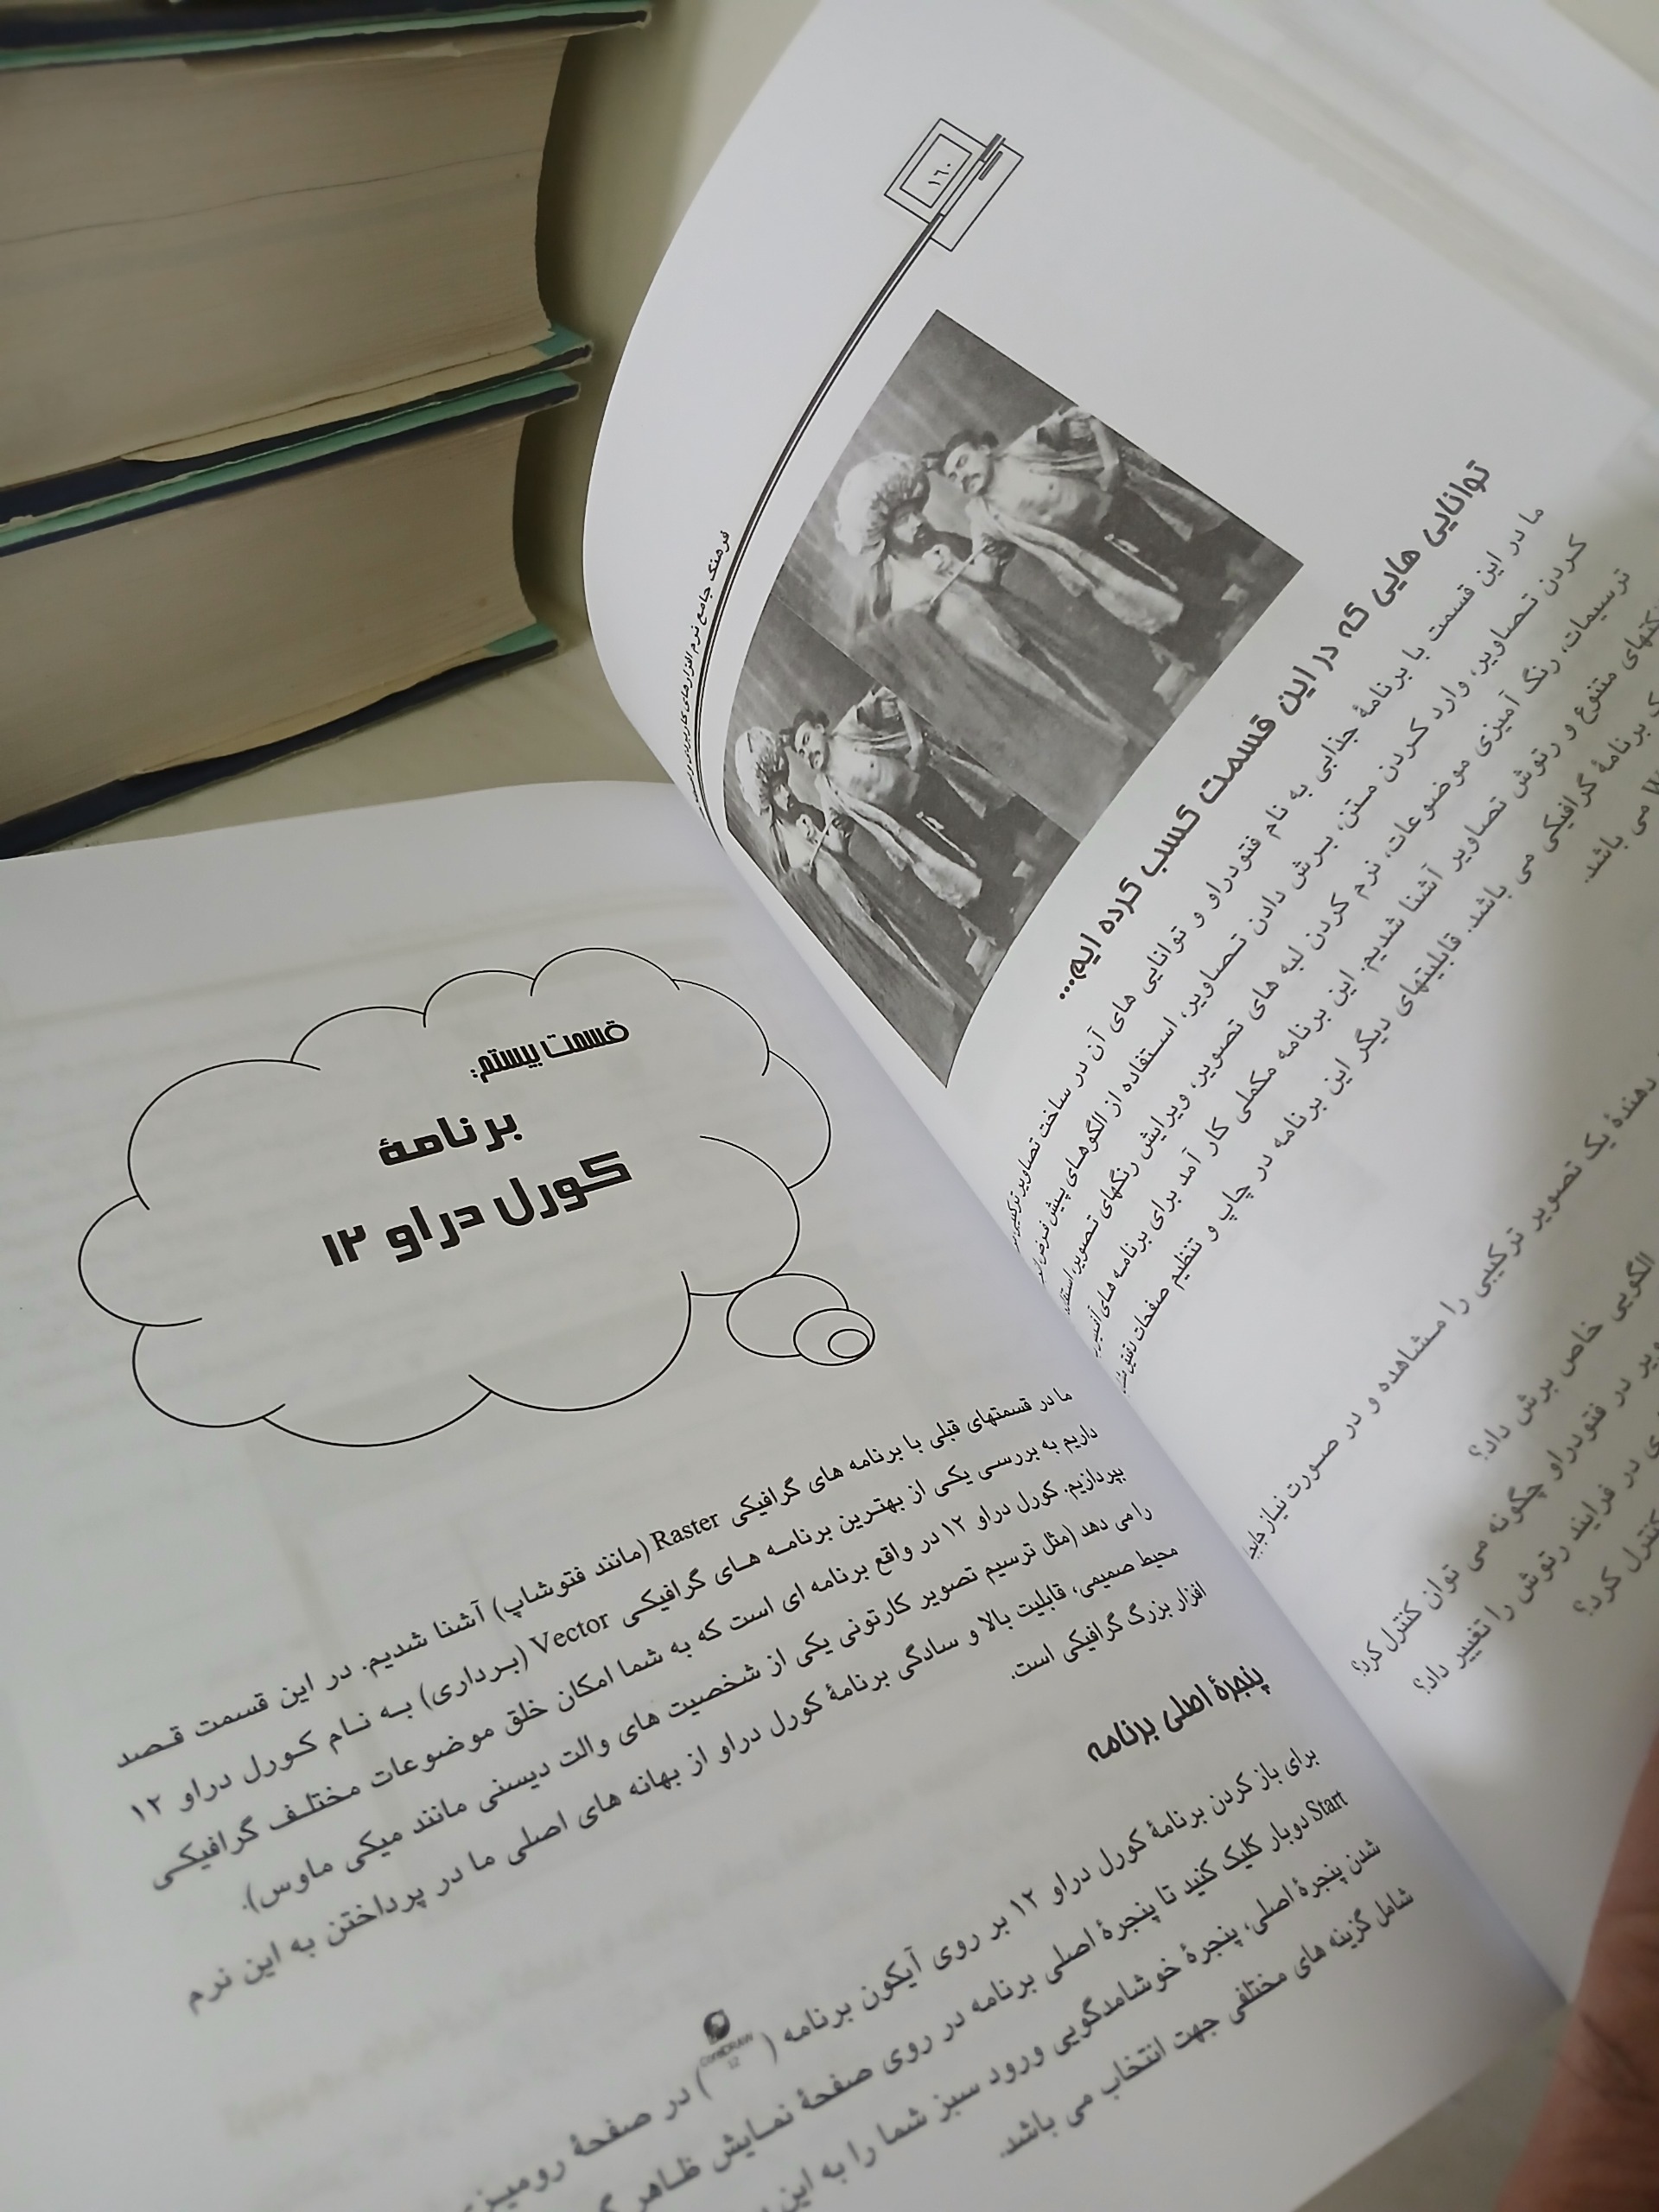 ۱۶۰
فرهنگ جامع نرم افزارهای کاربردی
توانایی هایی که در این قسمت کسب کرده ایم...
ما در این قسمت با برنامهٔ جذابی به نام فتودراو و توانایی های آن در ساخت تصاویر ترکیبی
کردن تصاویر، وارد کردن متن، برش دادن تصاویر، استفاده از الگوهای پیش فرض
ترسیمات، رنگ آمیزی موضوعات، نرم کردن لبه های تصویر، ویرایش رنگهای تصویر،
متنوع و رتوش تصاویر آشنا شدیم. این برنامه مکملی کار آمد برای برنامه های
برنامهٔ گرافیکی می باشد. قابلیتهای دیگر این برنامه در چاپ و تنظیم صفحات
می باشد.
دهندهٔ یک تصویر ترکیبی را مشاهده و در صورت نیاز
الگویی خاص برش داد؟
در فتودراو چگونه می توان کنترل کرد؟
در فرایند رتوش را تغییر داد؟
کنترل کرد؟
قسمت بیستم:
برنامهٔ
کورل دراو ۱۲
ما در قسمتهای قبلی با برنامه های گرافیکی Raster (مانند فتوشاپ) آشنا شدیم. در این قسمت قصد
داریم به بررسی یکی از بهترین برنامه های گرافیکی Vector (برداری) به نام کورل دراو ۱۲
بپردازیم. کورل دراو ۱۲ در واقع برنامه ای است که به شما امکان خلق موضوعات مختلف گرافیکی
را می دهد (مثل ترسیم تصویر کارتونی یکی از شخصیت های والت دیسنی مانند میکی ماوس).
محیط صمیمی، قابلیت بالا و سادگی برنامهٔ کورل دراو از بهانه های اصلی ما در پرداختن به این نرم
افزار بزرگ گرافیکی است.
پنجرهٔ اصلی برنامه
برای باز کردن برنامهٔ کورل دراو ۱۲ بر روی آیکون برنامه ( ) در صفحهٔ رومیزی
Start دوبار کلیک کنید تا پنجرهٔ اصلی برنامه در روی صفحهٔ نمایش ظاهر
شدن پنجرهٔ اصلی، پنجرهٔ خوشامدگویی ورود سبز شما را به این
شامل گزینه های مختلفی جهت انتخاب می باشد.